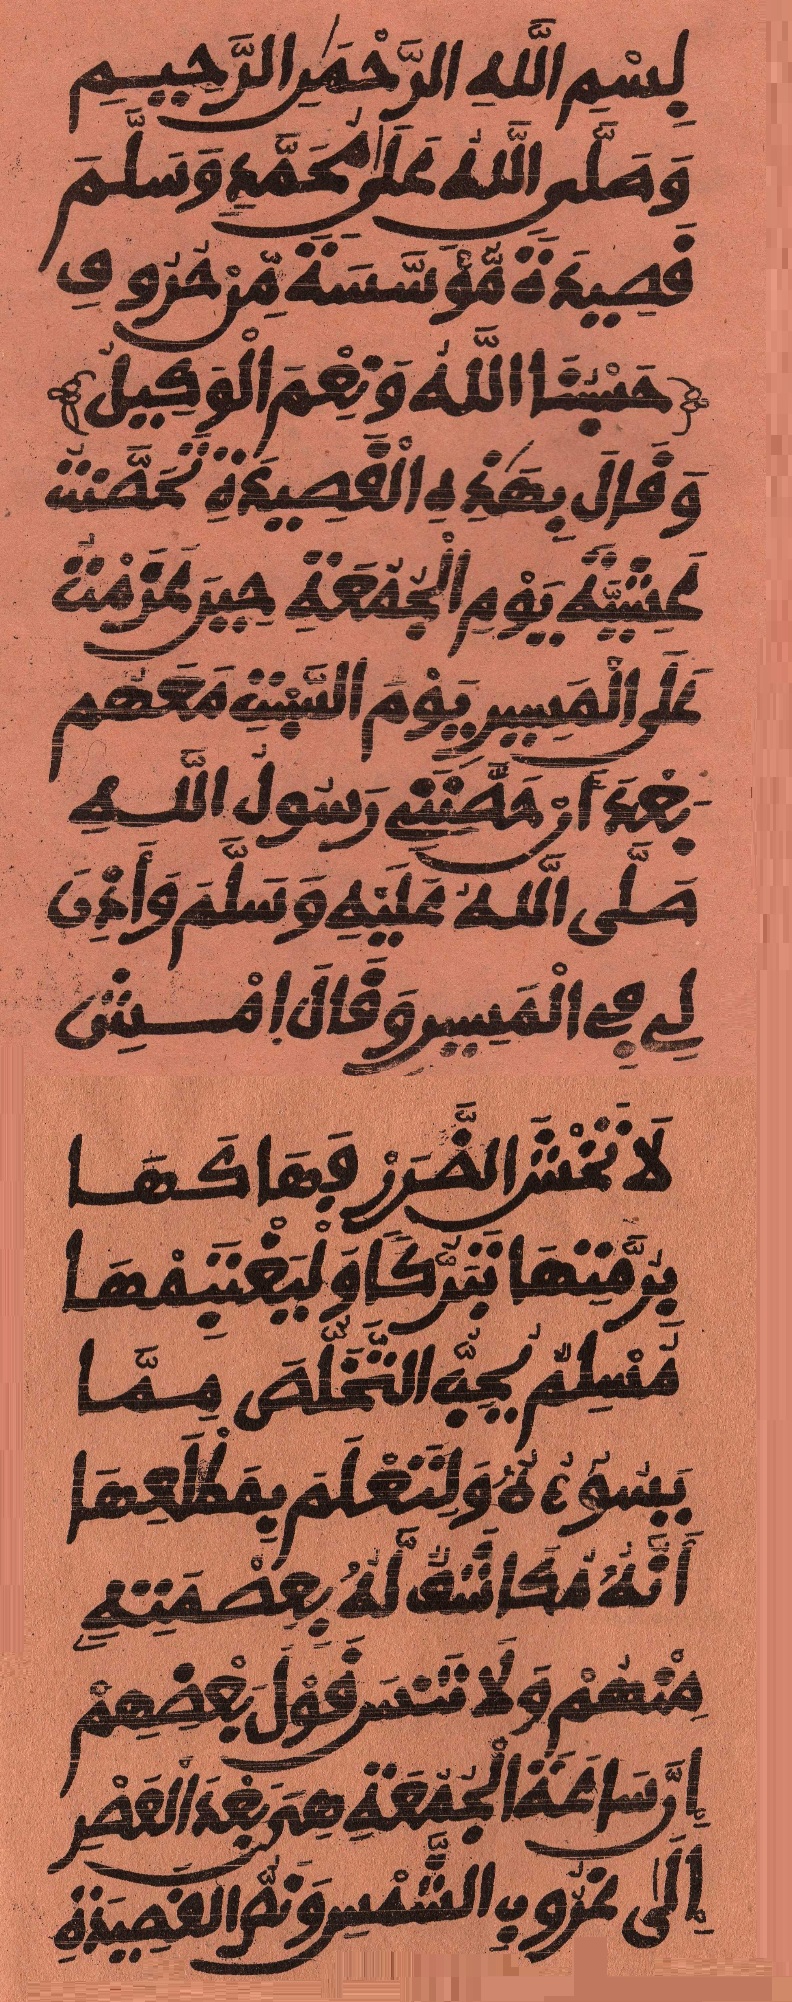 بِسْمِ اللَّهِ الرَّحْمَٰنِ الرَّحِيمِ
وَصَلَّى اللَّهُ عَلَى مُحَمَّدٍ وَسَلَّمَ
قَصِيدَةٌ مُّؤَسَّسَةٌ مِّنْ حُرُوفِ
حَسْبُنَا اللَّهُ وَنِعْمَ الْوَكِيلُ
وَقَالَ بِهَٰذِهِ الْقَصِيدَةِ تَحَصَّنْتُ
عَشِيَّةَ يَوْمِ الْجُمُعَةِ حِينَ عَزَمْتُ
عَلَى الْمَسِيرِ يَوْمَ السَّبْتِ مَعَهُمْ
بَعْدَ أَنْ حَصَّنَنِي رَسُولُ اللَّهِ
صَلَّى اللَّهُ عَلَيْهِ وَسَلَّمَ وَأَذِنَ
لِي فِي الْمَسِيرِ وَقَالَ امْشِ
لَا تَخْشَ الضَّرَرْ فَهَا كَهَا
بِرُمَّتِهَا تَبَرُّكًا وَلْيَغْتَنِمْهَا
مُسْلِمٌ يُحِبُّ التَّخَلُّصَ مِمَّا
يَسُوءُهُ وَلِتَعْلَمَ بِمَطْلَعِهَا
أَنَّهُ مُكَاشَفٌ لَّهُ بِعِصْمَتِهِ
مِنْهُمْ وَلَا تَنْسَ قَوْلَ بَعْضِهِمْ
إِنَّ سَاعَةَ الْجُمُعَةِ هِيَ بَعْدَ الْعَصْرِ
إِلَى غُرُوبِ الشَّمْسِ وَنَصُّ الْقَصِيدَةِ